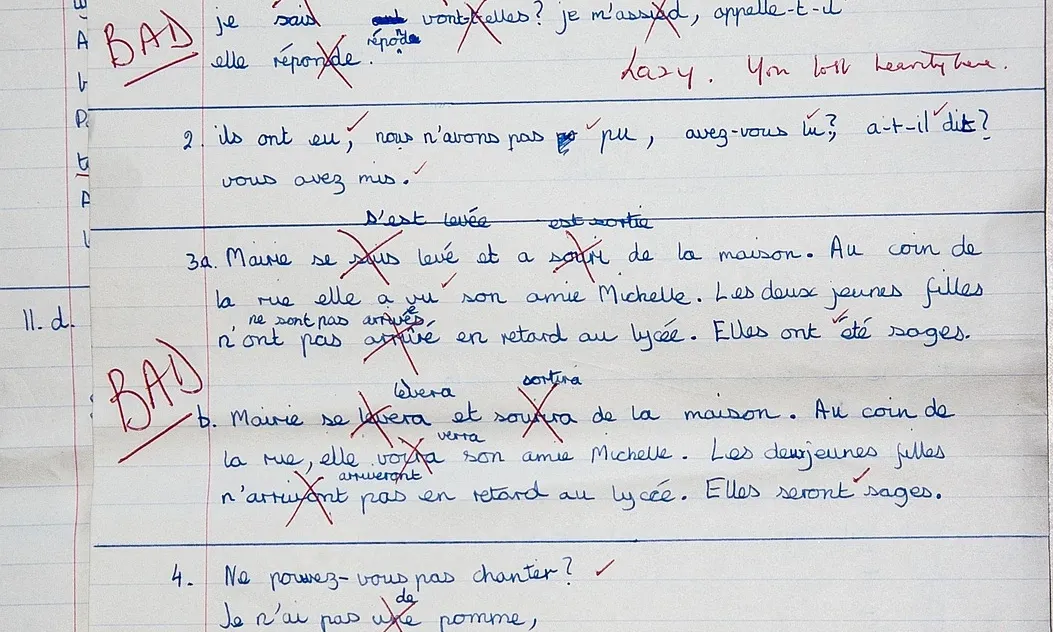 je sais vont-elles? je m'assied, appelle-t-il
BAD
elle réponde. réponde
Lazy. You lost heavily here.
2. ils ont eu, nous n'avons pas pu, avez-vous lu? a-t-il dit?
vous avez mis.
s'est levée est sortie
3a. Mairie se suis levé et a souri de la maison. Au coin de
la rue elle a vu son amie Michelle. Les deux jeunes filles
ne sont pas arrivées
n'ont pas arrivé en retard au lycée. Elles ont été sages.
11. d.
BAD
lèvera sortira
b. Mairie se levera et sourira de la maison. Au coin de
verra
la rue, elle voira son amie Michelle. Les deux jeunes filles
arriveront
n'arrivont pas en retard au lycée. Elles seront sages.
4. Ne pouvez-vous pas chanter?
de
Je n'ai pas une pomme,